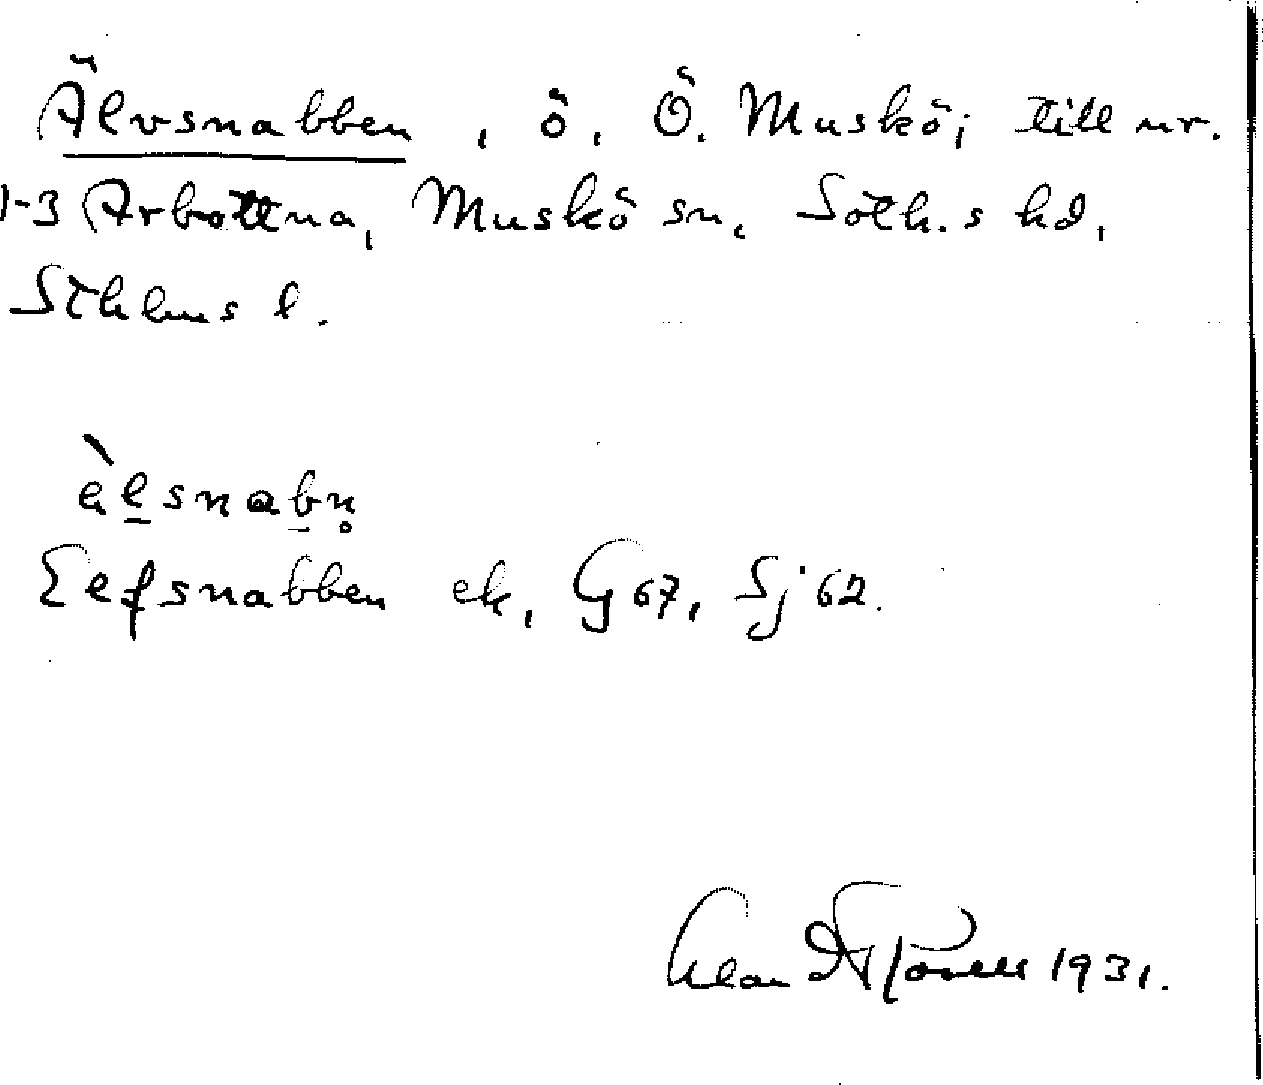 Älvsnabben, ö, Ö. Muskö; till nr.
1-3 Arbottna, Muskö sn, Soth.s hd,
Sthlms l.
èlsnabn̥
Eefsnabben ek, G 67, Sj 62.
1931.